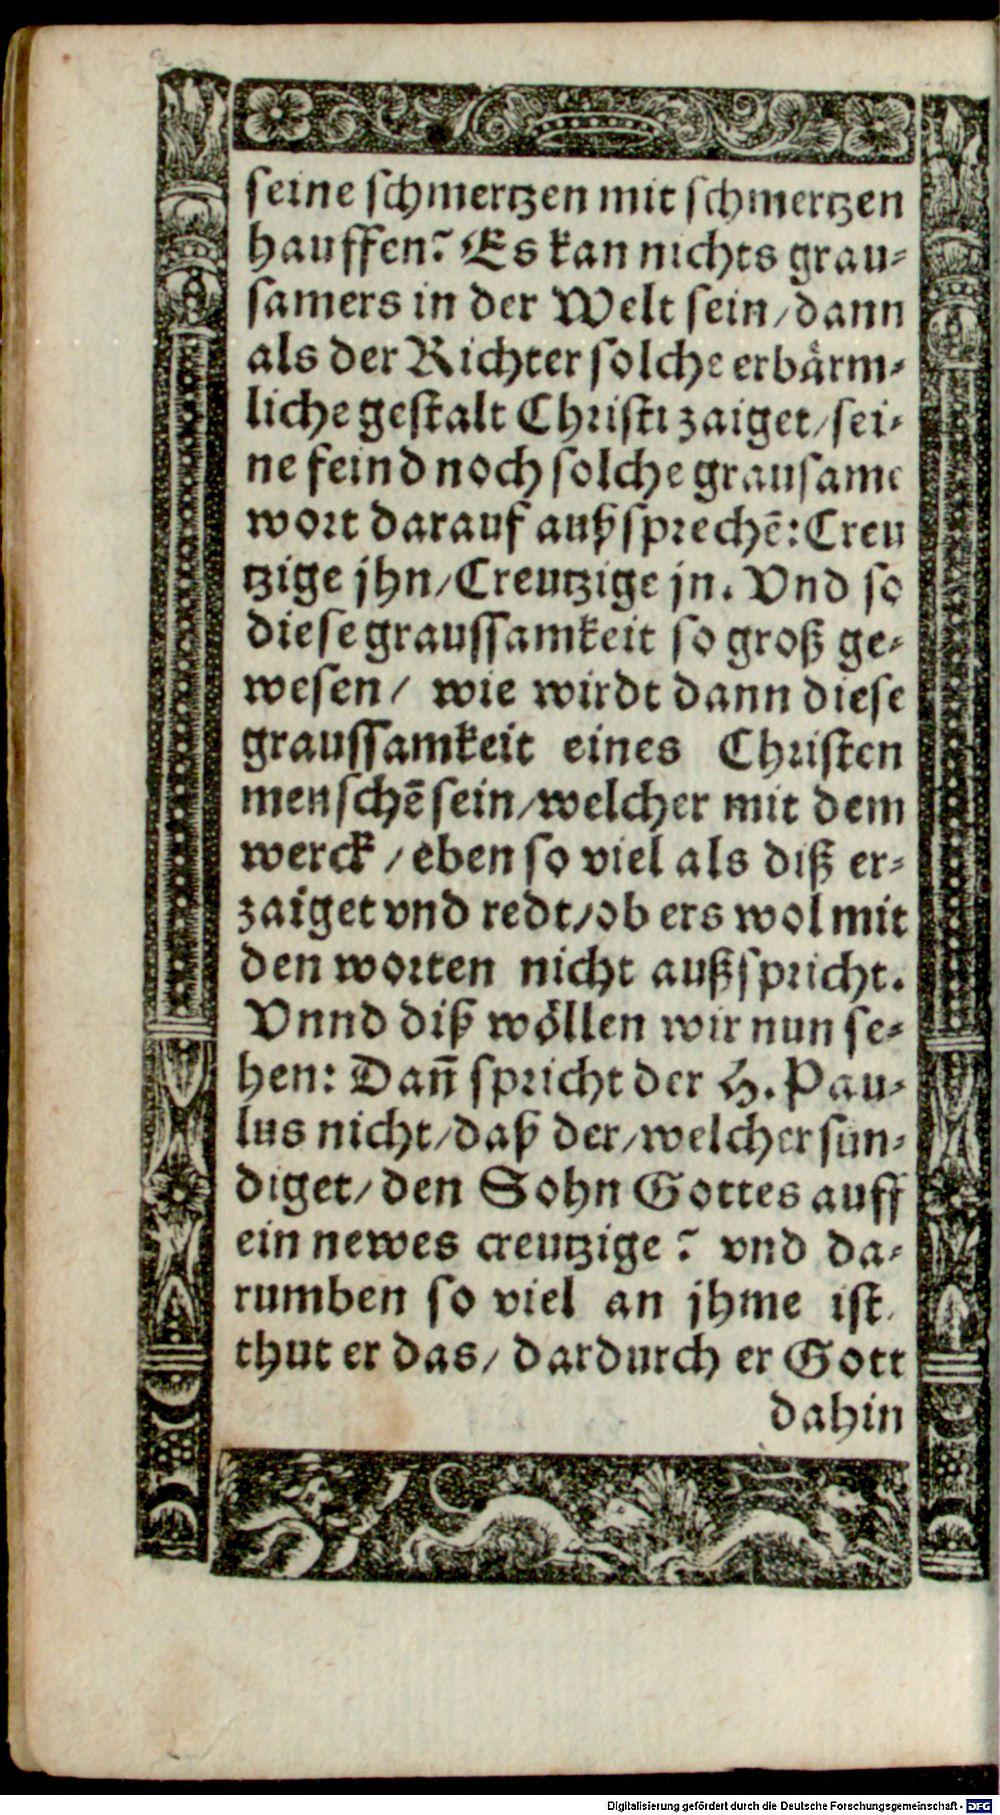 seine schmertzen mit schmertzen
hauffen? Es kan nichts grau-
samers in der Welt sein/dann
als der Richter solche erbärm-
liche gestalt Christi zaiget/sei-
ne feind noch solche grausame
wort darauf außsprechē: Creu
tzige jhn/Creutzige jn. Vnd so
diese graussamkeit so groß ge-
wesen/ wie wirdt dann diese
graussamkeit eines Christen
menschē sein/welcher mit dem
werck/eben so viel als diß er-
zaiget vnd redt/ob ers wol mit
den worten nicht außspricht.
Vnnd diß wöllen wir nun se-
hen: Dañ spricht der H. Pau-
lus nicht/daß der/welcher sün-
diget/den Sohn Gottes auff
ein newes creutzige? vnd da-
rumben so viel an jhme ist/
thut er das/dardurch er Gott
dahin
Digitalisierung gefördert durch die Deutsche Forschungsgemeinschaft - DFG